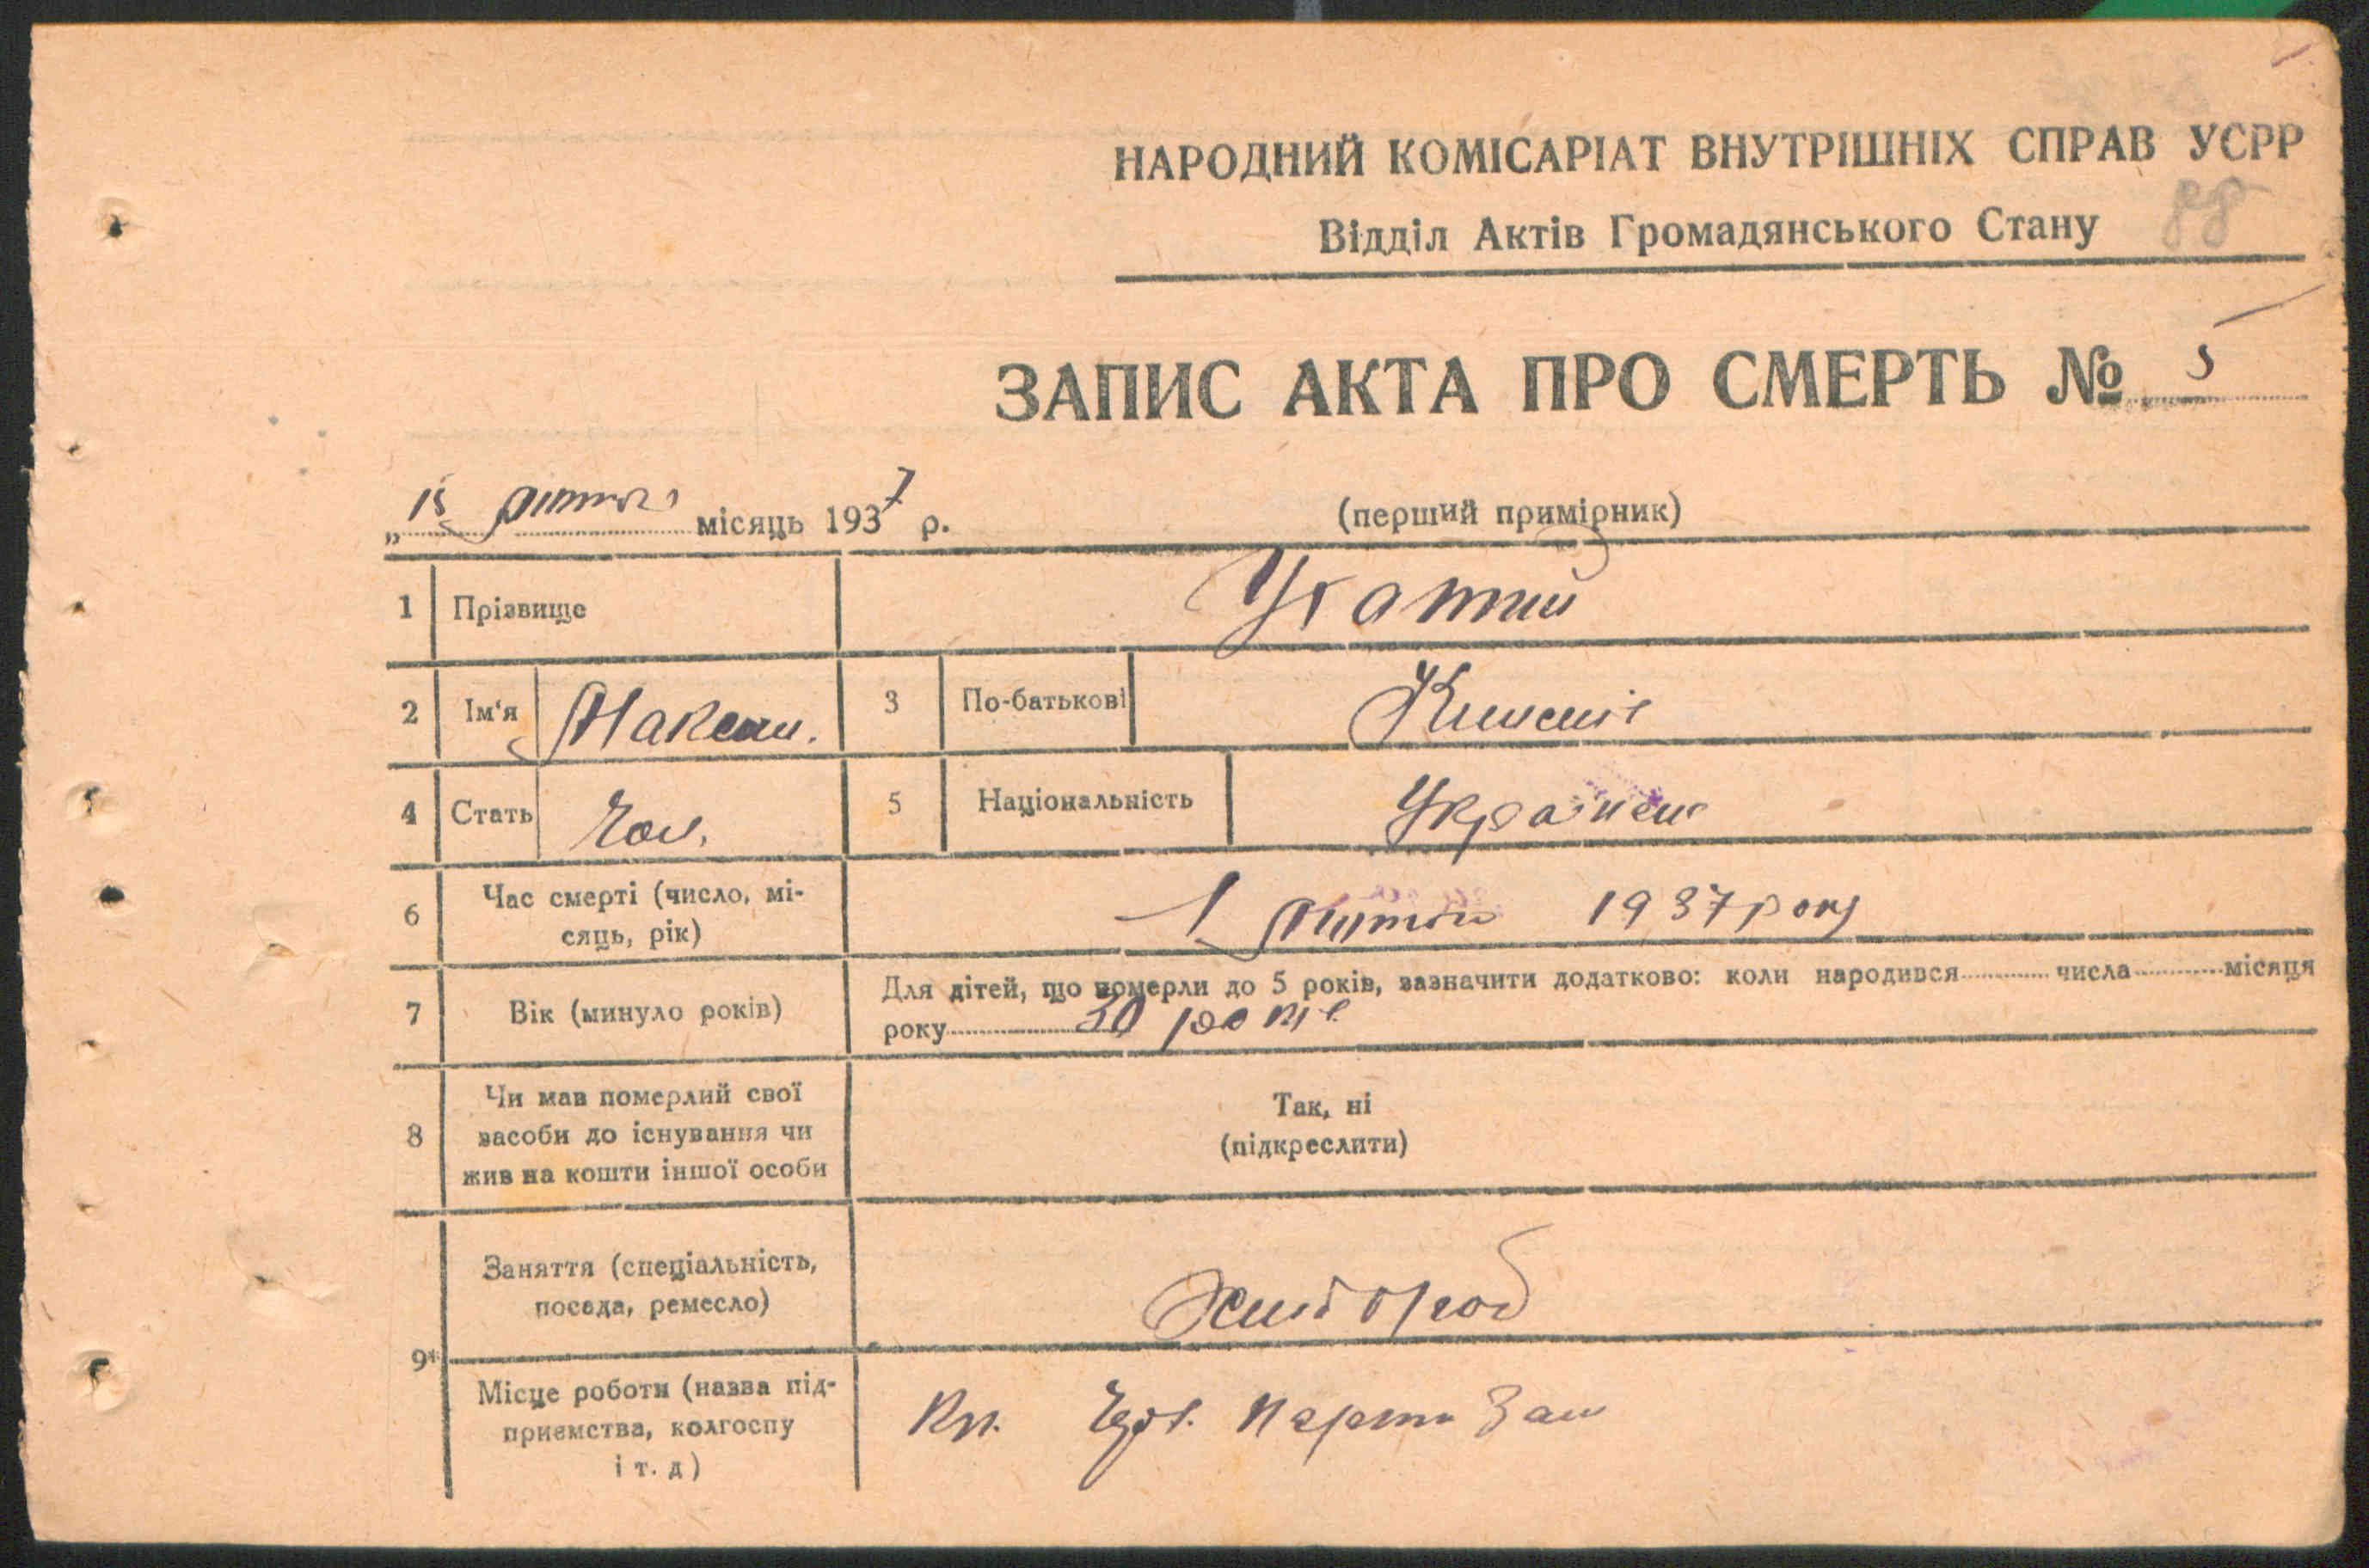 НАРОДНИЙ КОМІСАРІАТ ВНУТРІШНІХ СПРАВ УСРР
Відділ Актів Громадянського Стану
ЗАПИС АКТА ПРО СМЕРТЬ № 5
„15 лютого місяць 1937 р.
(перший примірник)
1 Прізвище
2 Ім'я Максим.
3 По-батькові
4 Стать Чол.
5 Національність Українец
6 Час смерті (число, мі-
сяць, рік)
1 лютого 1937 року
7 Вік (минуло років)
Для дітей, що померли до 5 років, зазначити додатково: коли народився числа місяця
року 30 років
8 Чи мав померлий свої
засоби до існування чи
жив на кошти іншої особи
Так, ні
(підкреслити)
9* Заняття (спеціальність,
посада, ремесло)
Хлібороб
Місце роботи (назва під-
приємства, колгоспу
і т. д)
Черв. Партизан